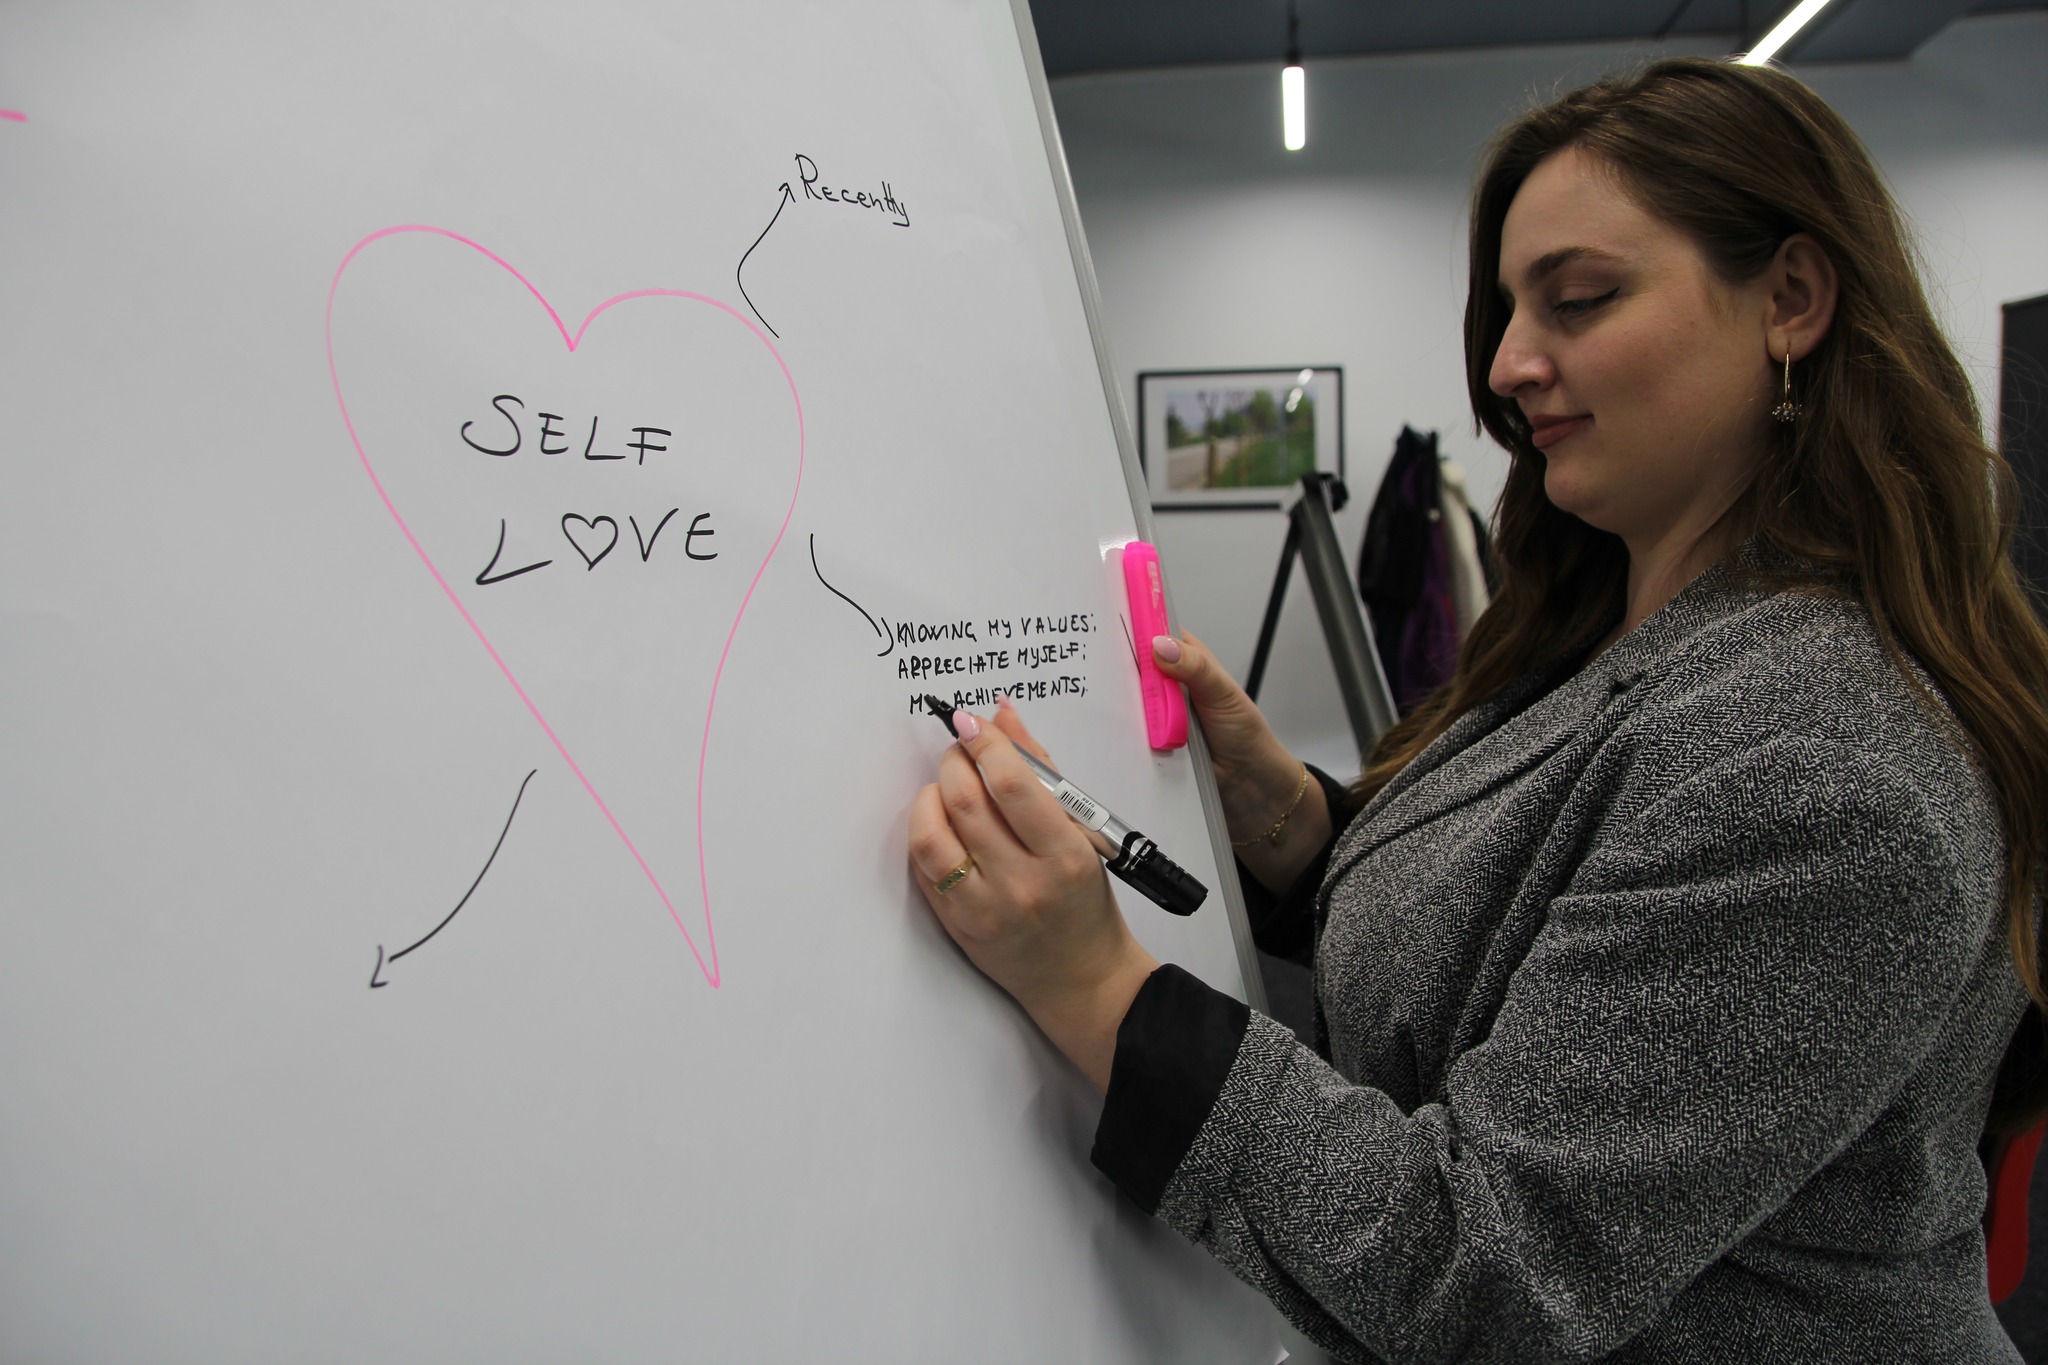 Recently
SELF
L♡VE
KNOWING MY VALUES;
APPRECIATE MYSELF;
MY ACHIEVEMENTS;